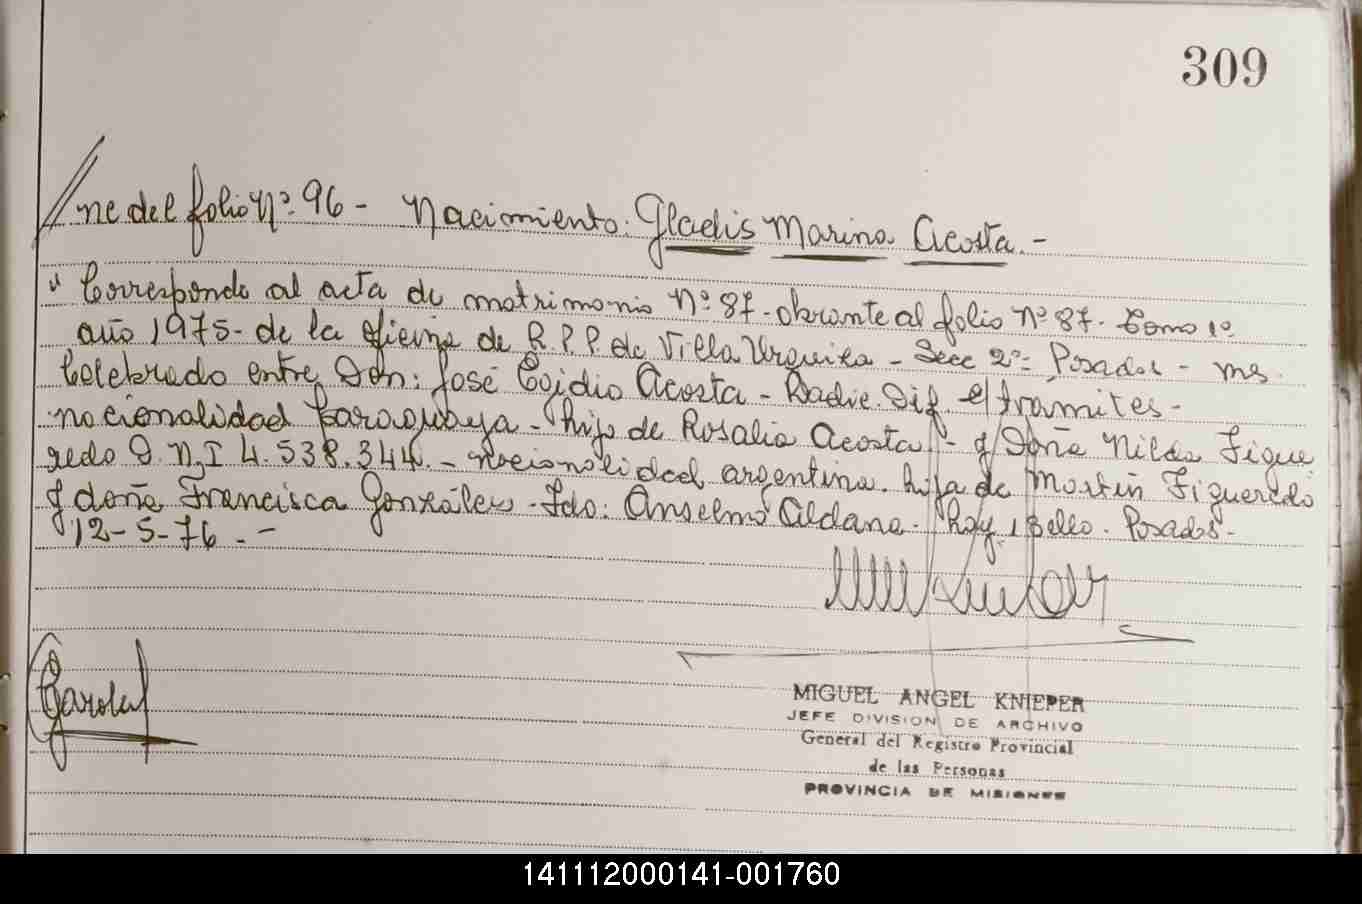 309
//ne del folio Nº 96 - Nacimiento: Gladis Marina Acosta. -
" Corresponde al acta de matrimonio Nº 87 - obrante al folio Nº 87. Tomo 1º.
año 1975 - de la oficina de R.P.P. de Villa Urquiza - Secc 2º - Posadas - Ms.
Celebrado entre Don: José Egidio Acosta - Radic. Dif. e/trámites -
nacionalidad paraguaya - hijo de Rosalia Acosta - y Doña Nilda Figue
redo D.N.I 4.538.344. - nacionalidad argentina. hija de Martín Figueredo
y doña Francisca González - Fdo: Anselmo Aldana. hay 1 sello. Posadas -
12-5-76. -
MIGUEL ANGEL KNIEPER
JEFE DIVISION DE ARCHIVO
General del Registro Provincial
de las Personas
PROVINCIA DE MISIONES
141112000141-001760